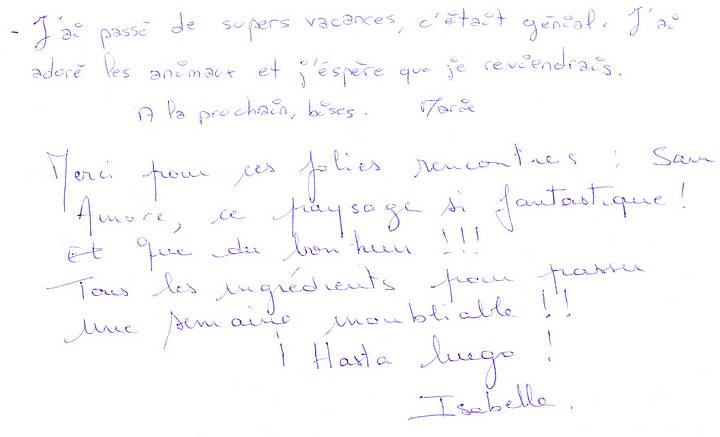 - J'ai passé de supers vacances, c'était génial. J'ai
adoré les animaux et j'éspère que je reviendrais.
A la prochain, bises. Marie
Merci pour ces jolies rencontres : Sam
Amore, ce paysage si fantastique !
Et que du bonheur !!!
Tous les ingrédients pour passer
une semaine inoubliable !!
¡ Hasta luego !
Isabelle.